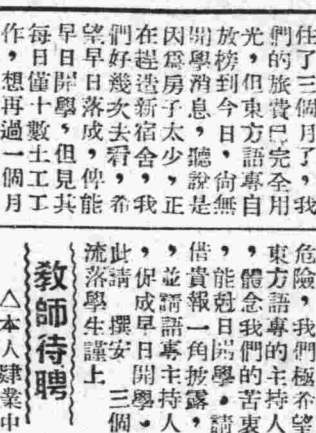 住了三個月了，我
們的旅費已完全用
光，但東方語專自
放榜到今日，尙無
開學消息，聽說是
因爲房子太少，正
在趕造新宿舍，我
們好幾次去看，希
望早日落成，俾能
早日開學，但見其
每日僅十數土工工
作，想再過一個月
危險，我們極希望
東方語專的主持人
，體念我們的苦東
，能尅日開學。請
借貴報一角披露，
，並請語專主持人
，促成早日開學。
此請　撰安　三個
流落學生謹上
教師待聘
△本人肄業中